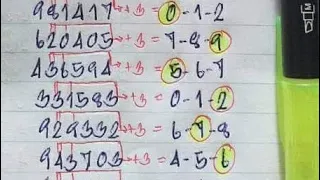 981417→+3=0-1-2
620405→+3=7-8-9
436594→+3=5-6-7
331583→+3=0-1-2
929332→+3=6-7-8
943703→+3=4-5-6